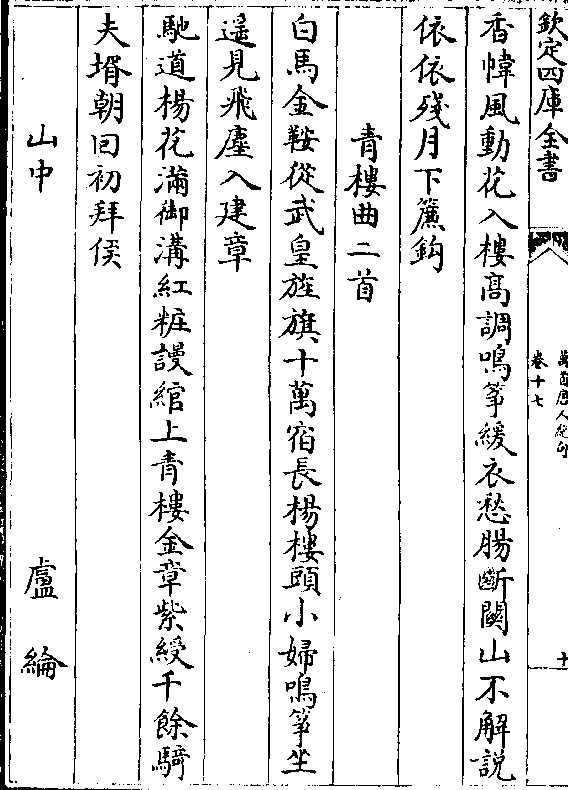 欽定四庫全書
萬首唐人絶句
卷十七
十
香幃風動花入樓髙調鳴箏緩衣愁腸斷闗山不解説
依依殘月下簾鈎
青樓曲二首
白馬金鞍從武皇旌旗十萬宿長楊樓頭小婦鳴箏坐
遥見飛塵入建章
馳道楊花滿御溝紅粧謾綰上青樓金章紫綬千餘騎
夫壻朝回初拜侯
山中 盧綸